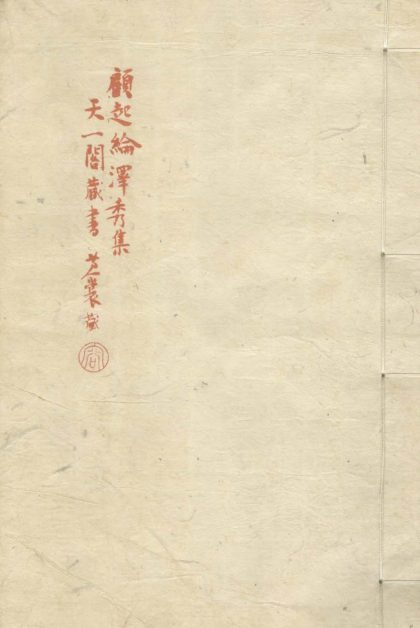 顧起綸澤秀集
天一閣藏書 芷裳藏